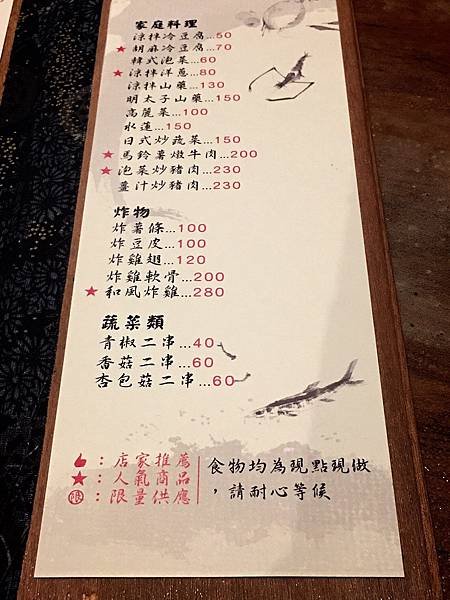 家庭料理
涼拌冷豆腐...50
★ 胡麻冷豆腐...70
韓式泡菜...60
★ 涼拌洋蔥...80
涼拌山藥...130
明太子山藥...150
高麗菜...100
水蓮...150
日式炒蔬菜...150
★ 馬鈴薯燉牛肉...200
★ 泡菜炒豬肉...230
薑汁炒豬肉...230
炸物
炸薯條...100
炸豆皮...100
炸雞翅...120
炸雞軟骨...200
★ 和風炸雞...280
蔬菜類
青椒二串...40
香菇二串...60
杏包菇二串...60
👍：店家推薦
★：人氣商品
限：限量供應
食物均為現點現做
，請耐心等候